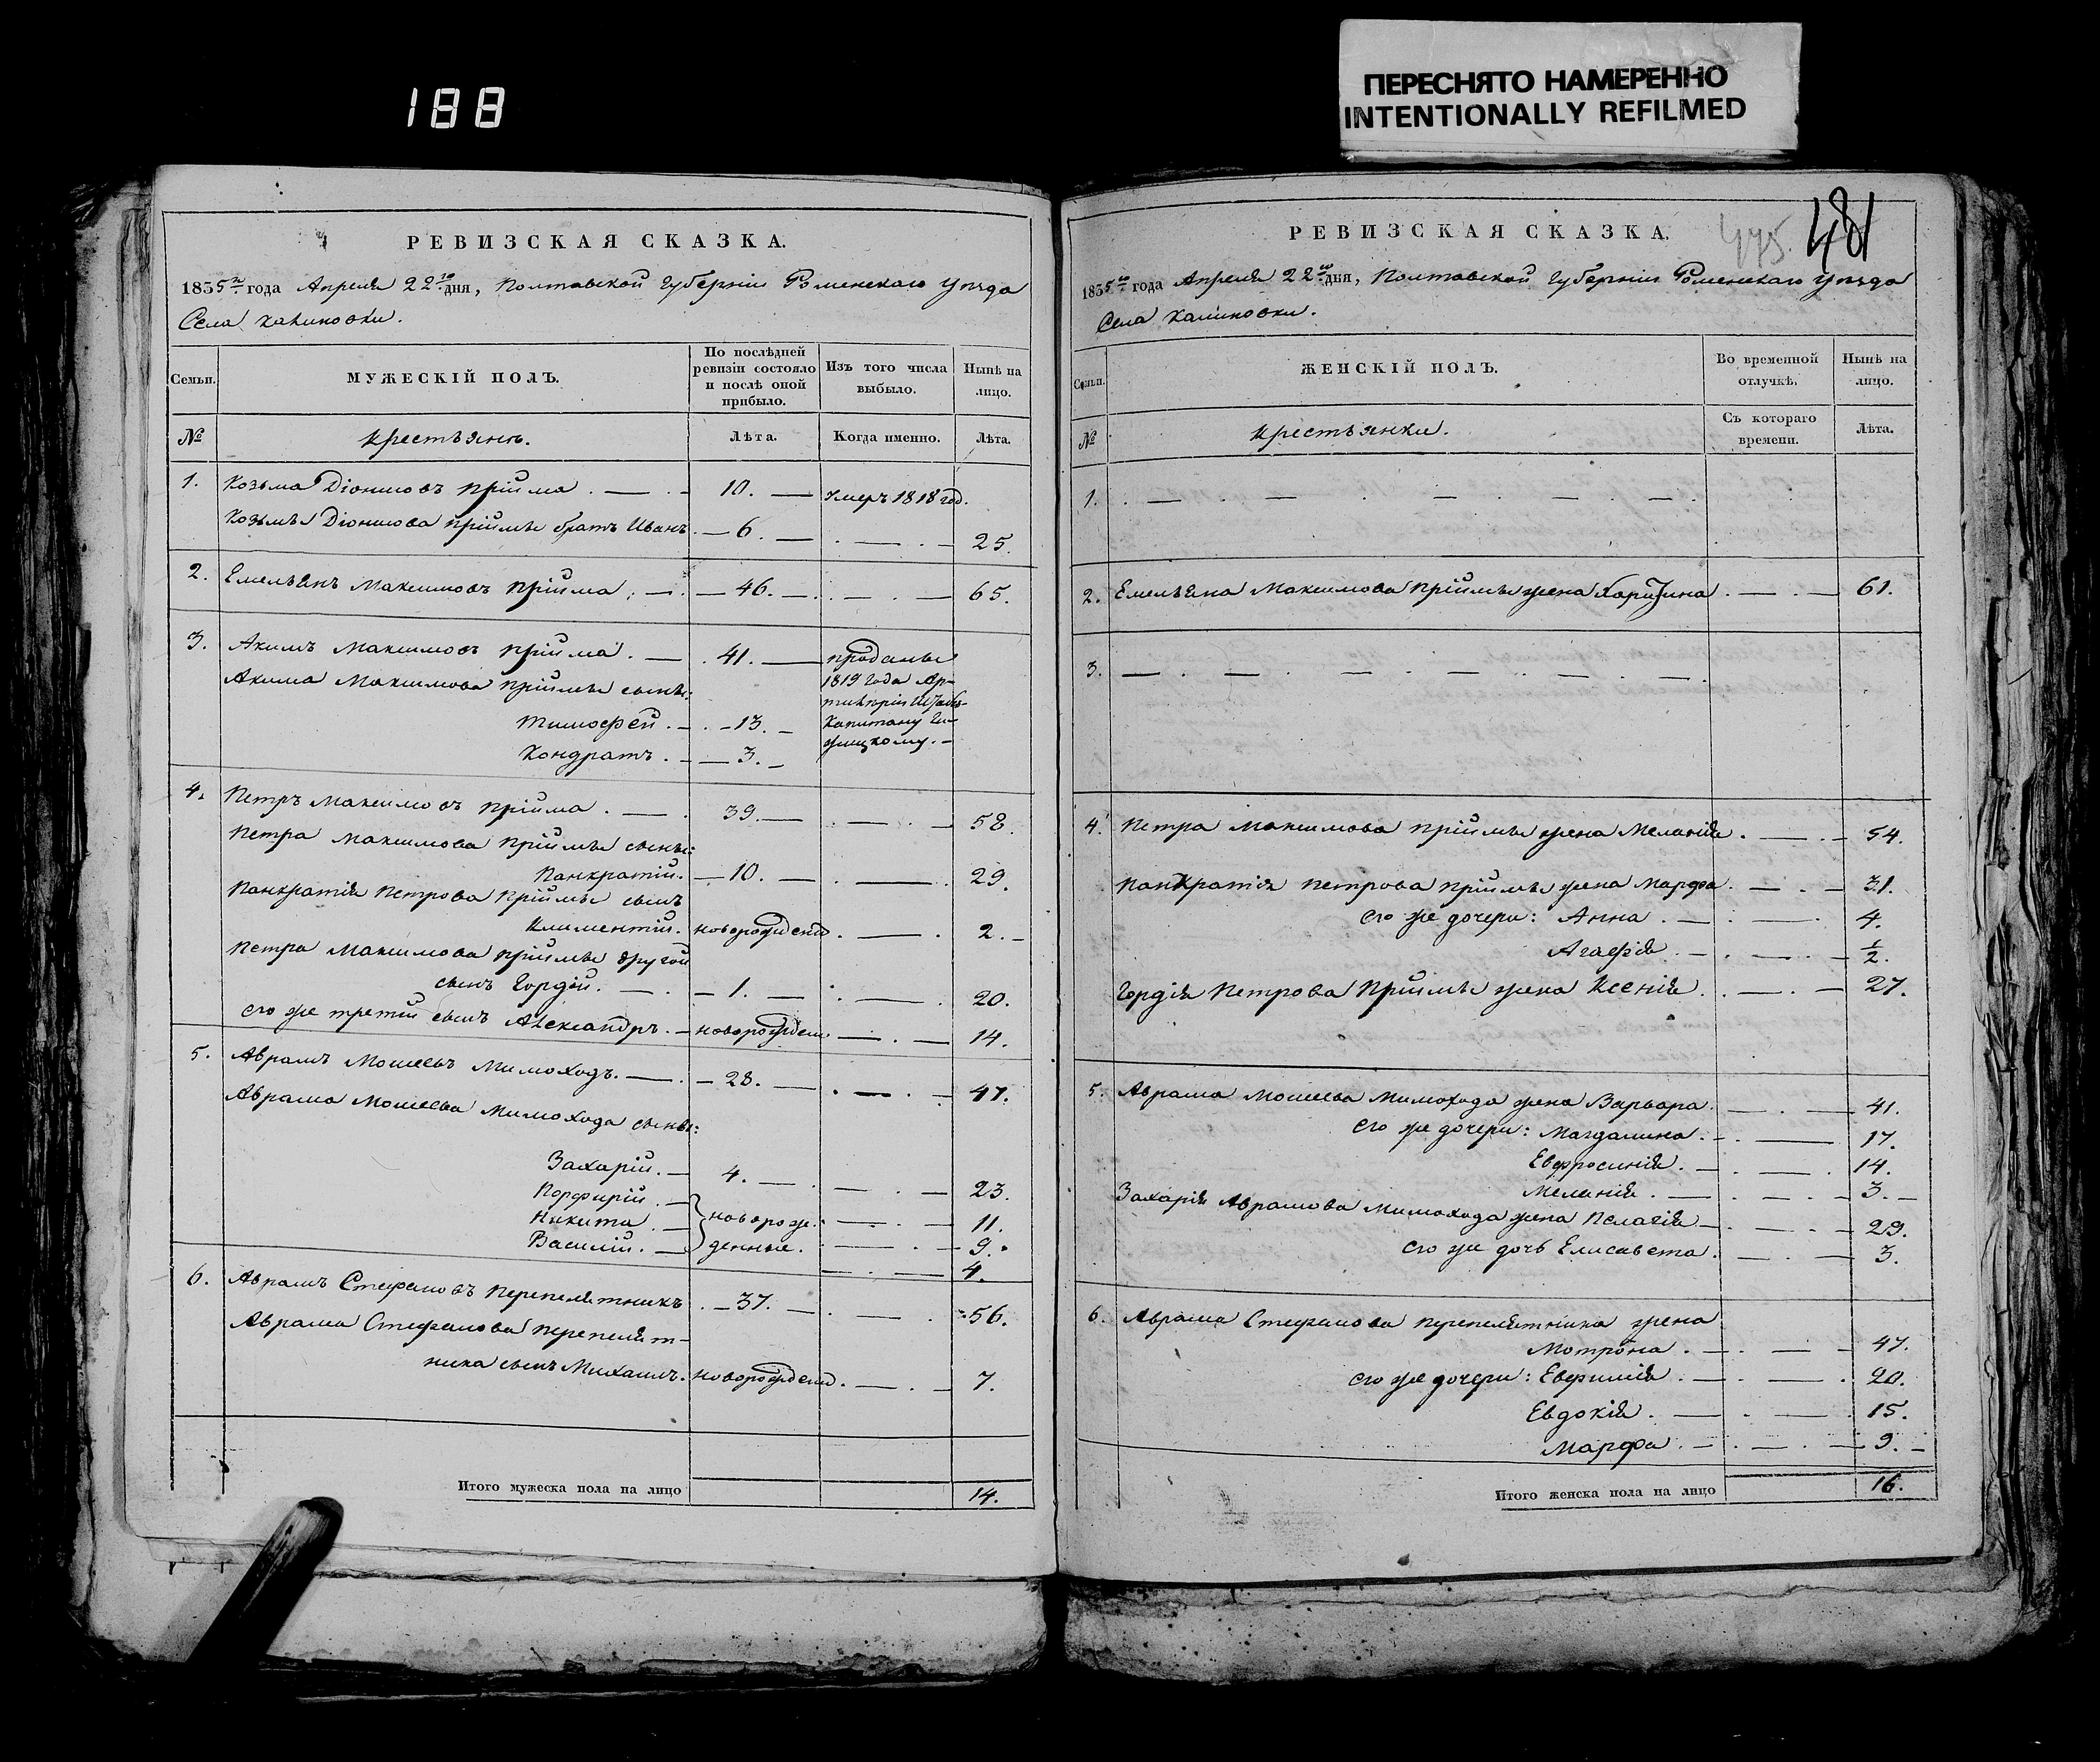 188
ПЕРЕСНЯТО НАМЕРЕННО
INTENTIONALLY REFILMED
РЕВИЗСКАЯ СКАЗКА.
1835го года Апреля 22го дня, Полтавской Губерніи Роменскаго Уѣзда
Села Калиновки.
Семьи.
МУЖЕСКІЙ ПОЛЪ.
По послѣдней ревизіи состояло и послѣ оной прибыло.
Изъ того числа выбыло.
Нынѣ на лицо.
№
Крестьянъ.
Лѣта.
Когда именно.
Лѣта.
1. Козьма Діонисовъ Прійма . — . — 10. — умеръ 1818 год.
Козьмы Діонисова Пріймы братъ Иванъ . — 6. — . — . — 25.
2. Емельянъ Максимовъ Прійма . — . — 46. — . — . — 65.
3. Акимъ Максимовъ Прійма . — . 41. — проданы
Акима Максимова Пріймы сыны: 1819 года Ар-
тилеріи Штабъ-
Тимофей . — . — 13. — Капитану
Кондратъ . — — 3. —
4. Петръ Максимовъ Прійма . — . 39. — . — . — 58.
Петра Максимова Пріймы сыны:
Панкратій. — 10. — . — . 29.
Панкратія Петрова Пріймы сынъ
Климентій. новорожденъ . — . 2. —
Петра Максимова Пріймы другой
сынъ Гордій. — . — 1. — . — . 20.
его же третій сынъ Александръ. — новорожден — . — 14.
5. Аврамъ Мошеевъ Мимоходъ. — . — 28. — . — . — 47.
Аврама Мошеева Мимохода сыны:
Захарій. — 4. — . — . — 23.
Порфирій. — новорож- . — . — 11.
Никита. — денные. . — . — 9.
Василій. — — . — 4.
6. Аврамъ Стефановъ Перепелятникъ . — 37. — . — . 56.
Аврама Стефанова Перепелят-
ника сынъ Михаилъ. новорожденъ . — . — 7.
Итого мужеска пола на лицо 14.
475. 481
РЕВИЗСКАЯ СКАЗКА.
1835го года Апреля 22го дня, Полтавской Губерніи Роменскаго Уѣзда
Села Калиновки.
Семьи.
ЖЕНСКІЙ ПОЛЪ.
Во временной отлучкѣ.
Нынѣ на лицо.
№
Крестьянки.
Съ котораго времени.
Лѣта.
1. . — . — . — . — . — .
2. Емельяна Максимова Пріймы жена Харитина . — . — 61.
3. — . — . — . — . — .
4. Петра Максимова Пріймы жена Меланія . — . — 54.
Панкратія Петрова Пріймы жена Марфа . — . — 31.
его же дочери: Анна . — . — . 4.
Агафія . — . — . — 1/2.
Гордія Петрова Пріймы жена Ксенія . — . — 27.
5. Аврама Мошеева Мимохода жена Варвара . — . — 41.
его же дочери: Магдалина . — . — 17.
Евфросинія . — . — . 14.
Меланія . — . — . — 3. —
Захарія Аврамова Мимохода жена Пелагія — . — . — 29.
его же дочь Елисавета . — . — 3.
6. Аврама Стефанова Перепелятника жена
Мотрона . — . — . — 47.
его же дочери: Евфимія . — . — . 20.
Евдокія . — . — . 15.
Марфа . — . — . — 9. —
Итого женска пола на лицо 16.